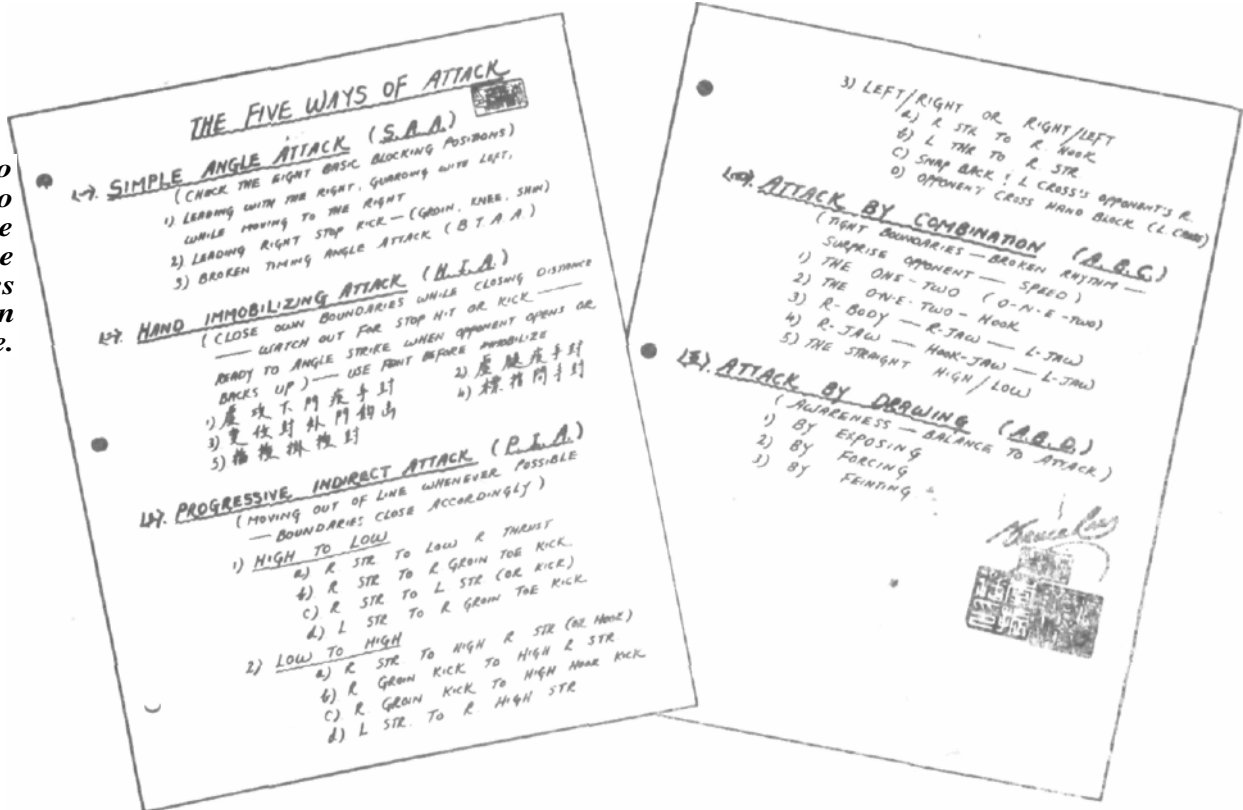 o
o
e
e
s
n
e.
THE FIVE WAYS OF ATTACK
(一). SIMPLE ANGLE ATTACK (S.A.A.)
(CHECK THE EIGHT BASIC BLOCKING POSITIONS)
1) LEADING WITH THE RIGHT, GUARDING WITH LEFT,
WHILE MOVING TO THE RIGHT
2) LEADING RIGHT STOP KICK — (GROIN, KNEE, SHIN)
3) BROKEN TIMING ANGLE ATTACK (B.T.A.A.)
(二). HAND IMMOBILIZING ATTACK (H.I.A.)
(CLOSE OWN BOUNDARIES WHILE CLOSING DISTANCE
— WATCH OUT FOR STOP HIT OR KICK —
READY TO ANGLE STRIKE WHEN OPPONENT OPENS OR
BACKS UP) — USE FEINT BEFORE IMMOBILIZE
1) 下門 手封 2) 手封
3) 封外門 4) 標指問手封
5) 封
(三). PROGRESSIVE INDIRECT ATTACK (P.I.A.)
(MOVING OUT OF LINE WHENEVER POSSIBLE
— BOUNDARIES CLOSE ACCORDINGLY)
1) HIGH TO LOW
a) R STR. TO LOW R THRUST
b) R STR TO R GROIN TOE KICK
c) R STR TO L STR (OR KICK)
d) L STR TO R GROIN TOE KICK
2) LOW TO HIGH
a) R STR TO HIGH R STR (OR HOOK)
b) R GROIN KICK TO HIGH R STR.
c) R. GROIN KICK TO HIGH HOOK KICK
d) L STR. TO R. HIGH STR
3) LEFT/RIGHT OR RIGHT/LEFT
a) R STR TO R. HOOK
b) L THR TO R. STR.
c) SNAP BACK & L CROSS'S OPPONENT'S R.
D) OPPONENT CROSS HAND BLOCK (L CROSS)
(四). ATTACK BY COMBINATION (A.B.C.)
(TIGHT BOUNDARIES — BROKEN RHYTHM —
SURPRISE OPPONENT — SPEED)
1) THE ONE-TWO (O-N-E-TWO)
2) THE O-N-E-TWO-HOOK
3) R-BODY — R-JAW — L-JAW
4) R-JAW — HOOK-JAW — L-JAW
5) THE STRAIGHT HIGH/LOW
(五). ATTACK BY DRAWING (A.B.D.)
(AWARENESS — BALANCE TO ATTACK)
1) BY EXPOSING
2) BY FORCING
3) BY FEINTING
Bruce Lee